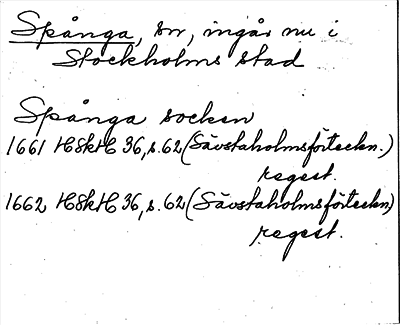 Spånga, sn, ingår nu i
Stockholms stad
Spånga socken
1661 HSkH 36, s. 62 (Sävstaholmsförteckn.)
regest.
1662 HSkH 36, s. 62 (Sävstaholmsförteckn)
regest.